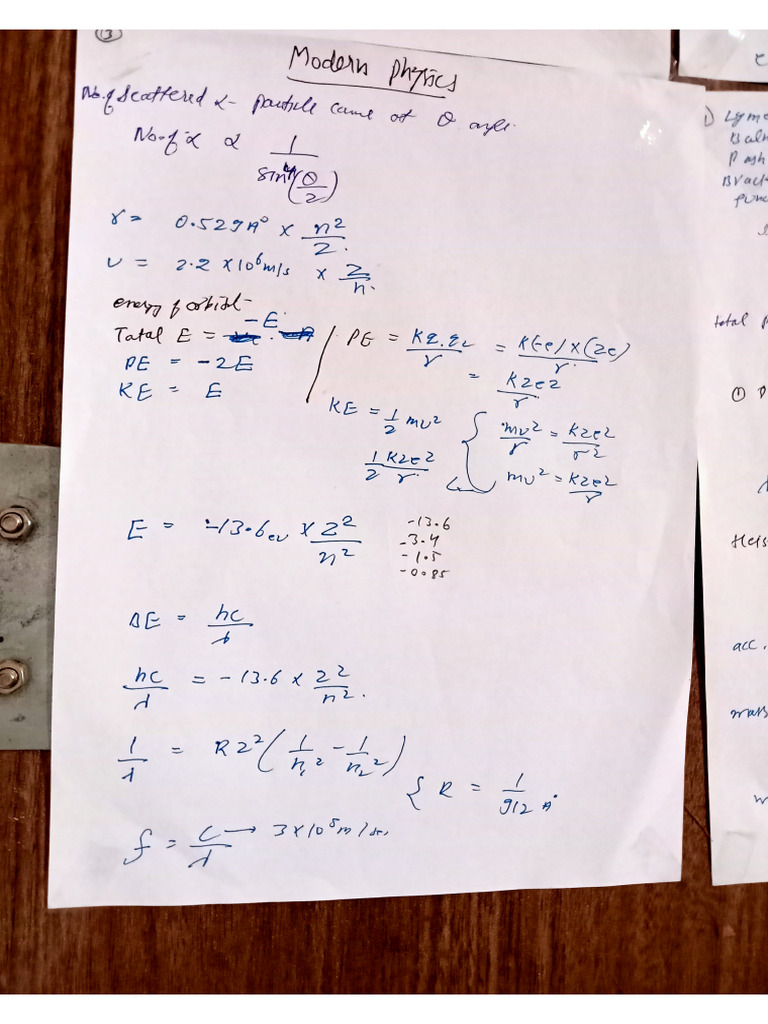 (3)
Modern Physics
No. of Scattered α- Particle came at θ angle.
No. of α ∝ 1/sin⁴(θ/2)
r = 0.529 A° × n²/Z.
v = 2.2 × 10⁶ m/s × Z/n.
energy of orbital-
Total E = -E.
PE = -2E
KE = E
PE = Kq.q₂/r = K(-e)×(Ze)/r.
= KZe2/r
KE = 1/2 mv²
1/2 KZe2/r
{ mv²/r = KZe2/r2
mv² = KZe2/r
E = -13.6ev × Z²/n²
-13.6
-3.4
-1.5
-0.85
ΔE = hc/λ
hc/λ = -13.6 × Z²/n².
1/λ = RZ²(1/n₁² - 1/n₂²)
{ R = 1/912 A°
f = c/λ → 3×10⁸ m/sec.
1) Lyme
Bal
Pash
Brack
total p
① P
Heis
acc.
mass